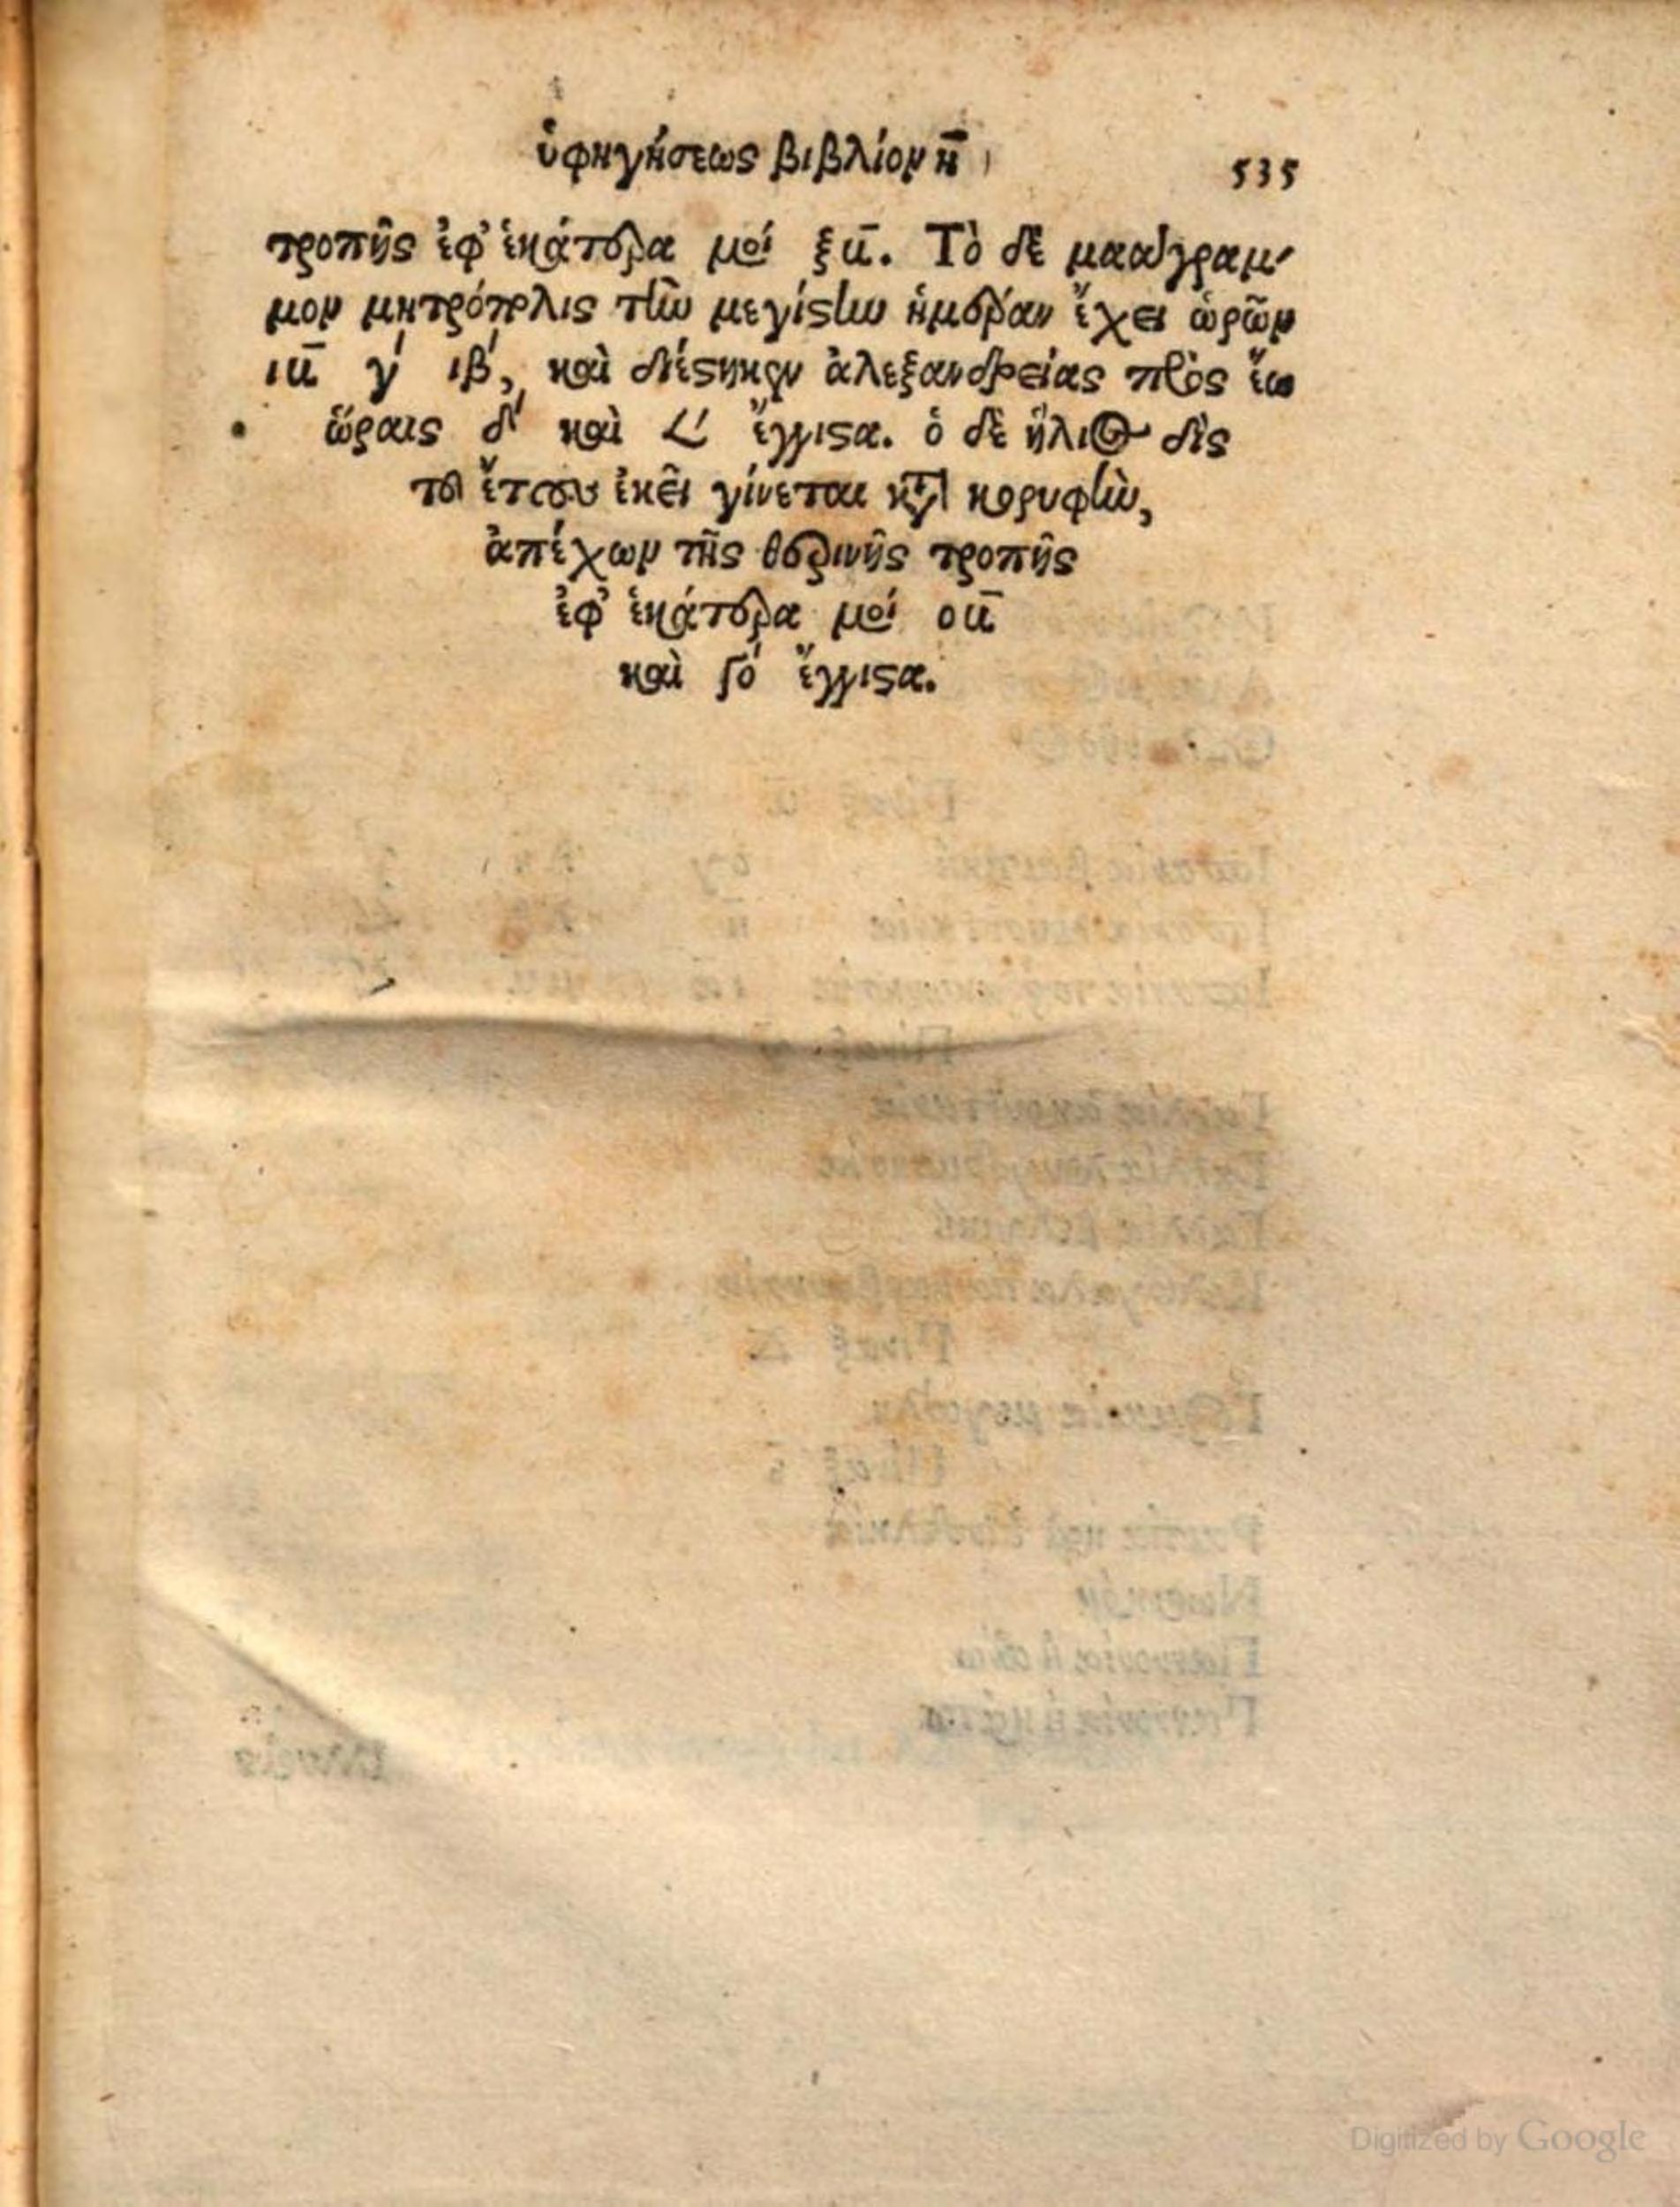 ὑφηγήσεως βιβλίον η̄
535
τροπῆς ἐφ' ἑκάτερα μοί ξε̄. Τὸ δὲ μαάγραμ-
μον μητρόπολις τὴν μεγίστην ἡμέραν ἔχει ὡρῶν
ιε̄ γ' ιβ', καὶ διέστηκεν ἀλεξανδρείας πρὸς ἕω
ὥραις δ' καὶ 𐅵' ἔγγιστα. ὁ δὲ ἥλιος δὶς
τοῦ ἔτους ἐκεῖ γίνεται κατὰ κορυφὴν,
ἀπέχων τῆς θερινῆς τροπῆς
ἐφ' ἑκάτερα μοί οε̄
καὶ γο' ἔγγιστα.
Digitized by Google